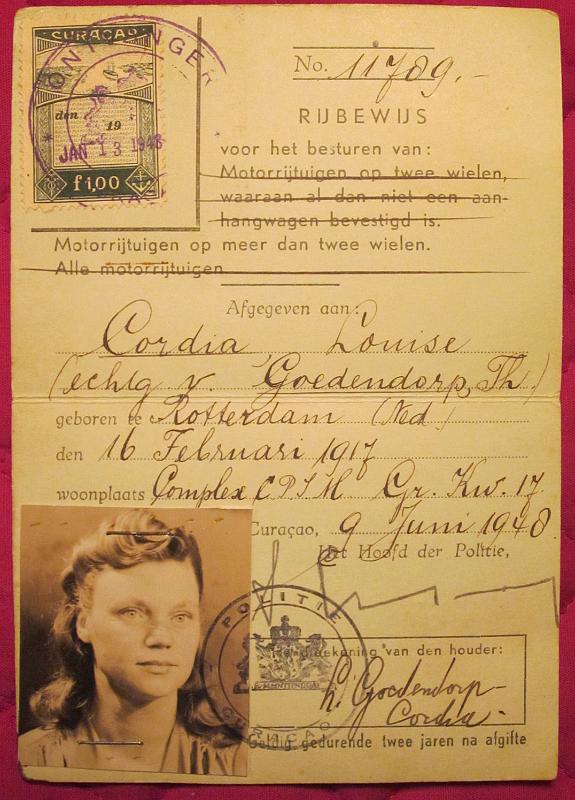 CURAÇAO
ONTVANGER
den
19
JAN 13 1948
f 1,00
No. 11789.-
RIJBEWIJS
voor het besturen van:
Motorrijtuigen op twee wielen,
waaraan al dan niet een aan-
hangwagen bevestigd is.
Motorrijtuigen op meer dan twee wielen.
Alle motorrijtuigen
Afgegeven aan:
Cordia Louise
(echtg v. Goedendorp, Th.)
geboren te Rotterdam (Ned.)
den 16 Februari 1917
woonplaats Complex C P I M Gr. Kw. 17
Curaçao, 9 Juni 1948.
Het Hoofd der Politie,
POLITIE
CURAÇAO
Handteekening van den houder:
L. Goedendorp-
Cordia.
Geldig gedurende twee jaren na afgifte